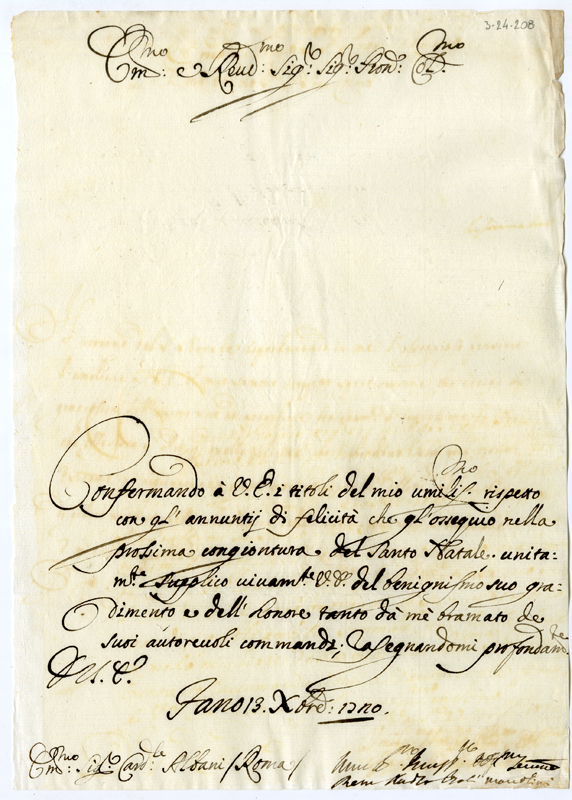 3-24-208
Em:mo e Reud:mo Sig:r Sig:r Pron: Col:mo
Confermando à V.E. i titoli del mio umilis:mo rispetto
con gl' annuntij di felicità che gl'ossequio nella
prossima congiontura del Santo Natale. unita:
m:te supplico vivam:te V.E. del benignissimo suo gra-
dimento e dell' honore tanto dà mè bramato de
suoi autorevoli commandi; rasegnandomi profondam:te
D V. E.
Fano 13. Xbre: 1720.
Em:mo Sig:r Card:le Albani / Roma /